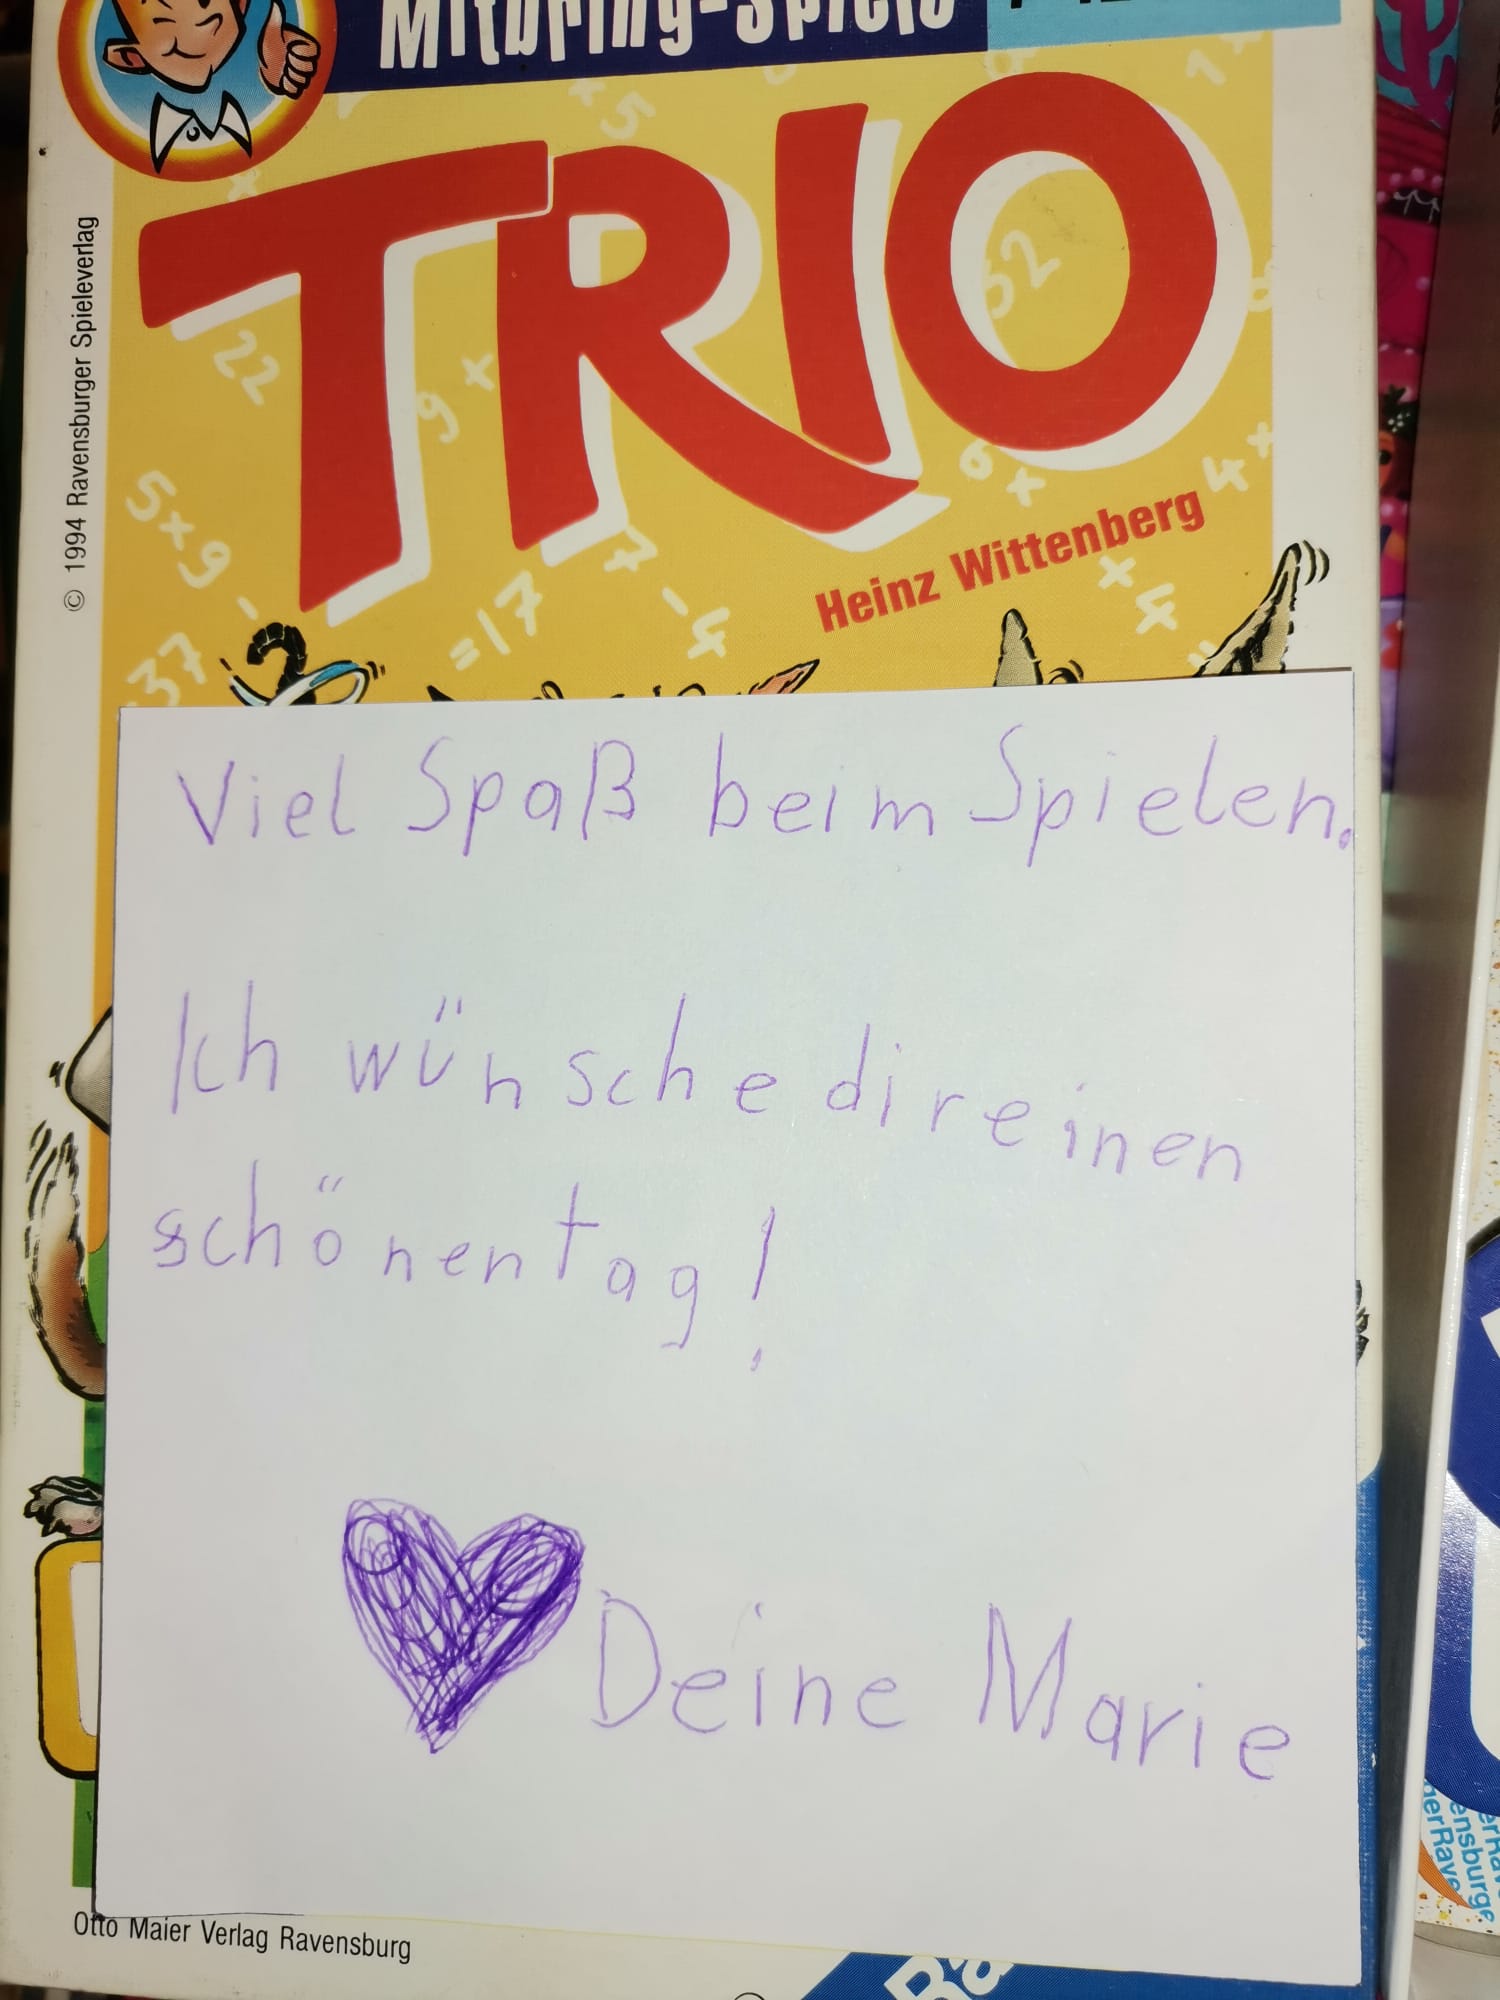 Mitbring-Spiele
TRIO
Heinz Wittenberg
© 1994 Ravensburger Spieleverlag
22
9 x
x 5
62
5 x 9 -
37
= 17
7
- 4
6 x
4 x
x 4
Viel Spaß beim Spielen.
Ich wünsche dir einen
schönen tag!
Deine Marie
Otto Maier Verlag Ravensburg
Ra